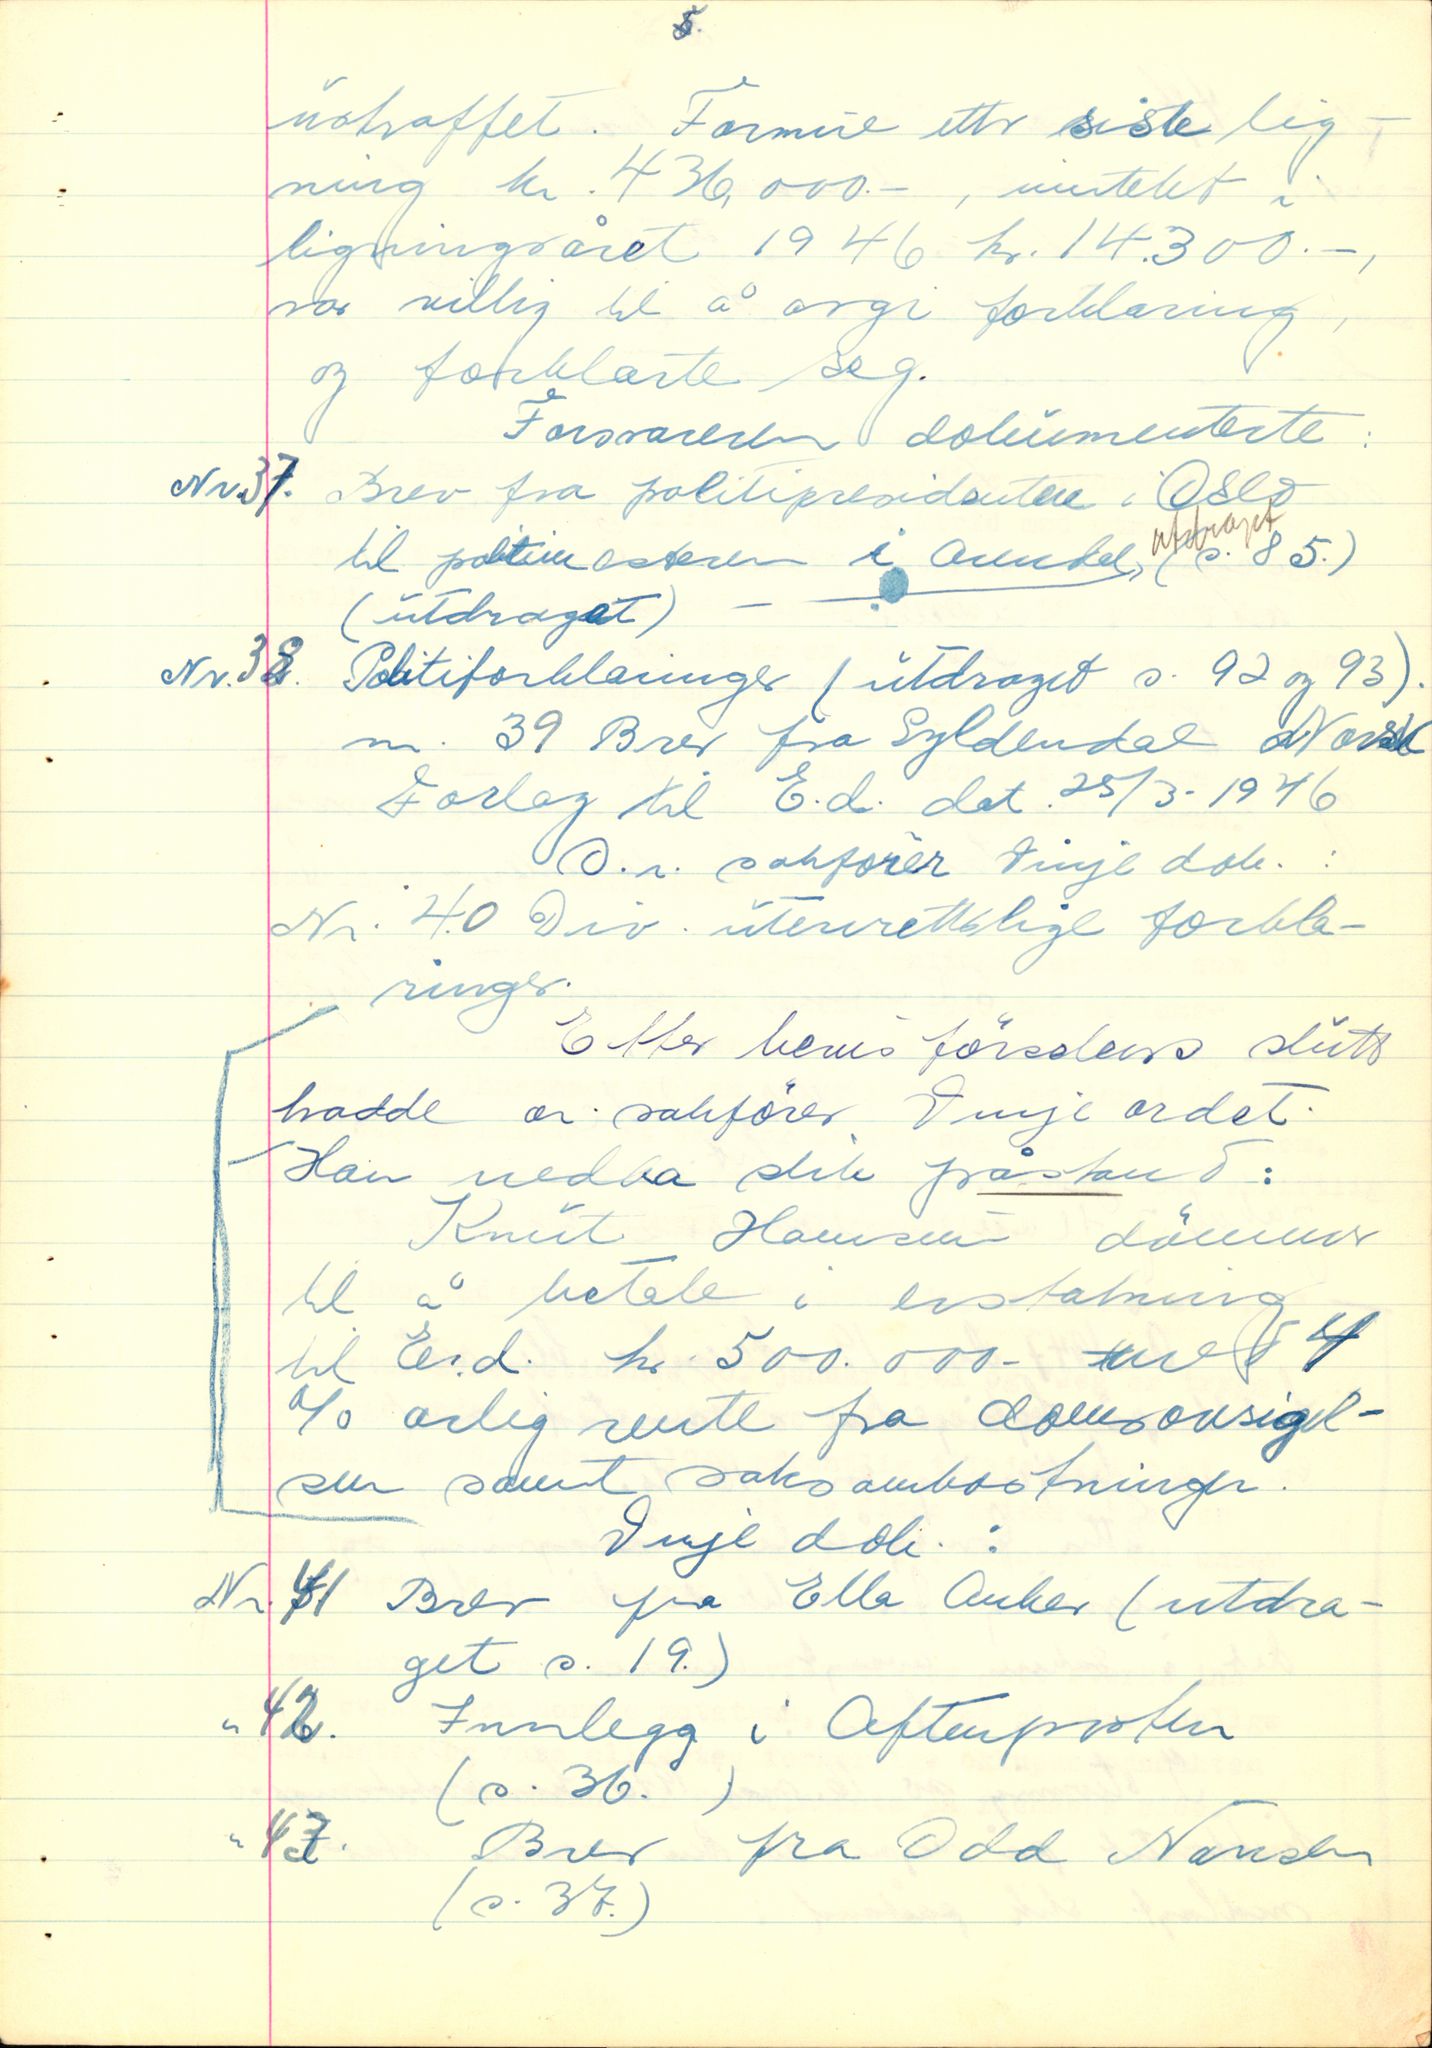 5.
ustraffet. Formue etter siste lig-
ning kr. 436,000.-, inntekt i
ligningsåret 1946 kr. 14.300.-,
var villig til å avgi forklaring,
og forklarte seg.
Forsvareren dokumenterte:
Nr. 37. Brev fra politipresidenten i Oslo
utdraget
til politimesteren i Arendal, (s. 85.)
(utdraget) -
Nr. 38. Politiforklaringer (utdraget s. 92 og 93).
nr. 39 Brev fra Gyldendal Norsk
Forlag til E.d. dat. 25/3-1946
O.r. sakfører Vinje dok. :
Nr. 40 Div. utenrettslige forkla-
ringer.
Etter bevisførselens slutt
hadde o.r. sakfører Vinje ordet.
Han nedla slik påstand:
Knut Hamsun dømmes
til å betale i erstatning
til E.d. kr. 500.000.- med 4
% årlig rente fra domsavsigel-
sen samt saksomkostninger.
Vinje dok. :
Nr. 41 Brev fra Ella Anker (utdra-
get s. 19.)
" 42. Innlegg i Aftenposten
(s. 36.)
" 43. Brev fra Odd Nansen
(s. 37.)